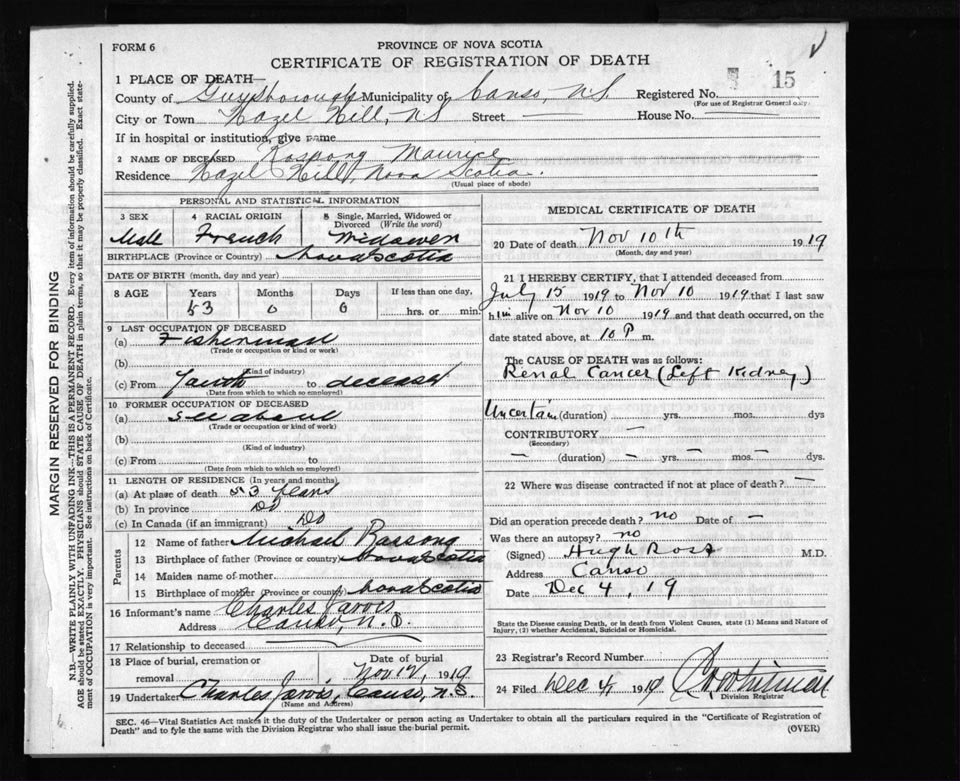 FORM 6
PROVINCE OF NOVA SCOTIA
CERTIFICATE OF REGISTRATION OF DEATH
1 PLACE OF DEATH—
County of Guysborough Municipality of Canso, N.S. Registered No. 15
(For use of Registrar General only.)
City or Town Hazel Hill, NS Street — House No. —
If in hospital or institution, give name
2 NAME OF DECEASED Maurice
Residence Hazel Hill, Nova Scotia.
(Usual place of abode)
PERSONAL AND STATISTICAL INFORMATION
3 SEX 4 RACIAL ORIGIN 5 Single, Married, Widowed or Divorced (Write the word)
Male French Widower
BIRTHPLACE (Province or Country) Nova Scotia
DATE OF BIRTH (month, day and year)
8 AGE Years Months Days If less than one day,
53 0 0 hrs. or min.
9 LAST OCCUPATION OF DECEASED
(a) Fisherman
(Trade or occupation or kind or work)
(b)
(Kind of industry)
(c) From Youth to deceased
(Date from which to which so employed)
10 FORMER OCCUPATION OF DECEASED
(a) See above
(Trade or occupation or kind of work)
(b)
(Kind of industry)
(c) From to
(Date from which to which so employed)
11 LENGTH OF RESIDENCE (In years and months)
(a) At place of death 53 years
(b) In province Do
(c) In Canada (if an immigrant) Do
Parents
12 Name of father Michael Rassong
13 Birthplace of father (Province or country) Nova Scotia
14 Maiden name of mother
15 Birthplace of mother (Province or country) Nova Scotia
16 Informant's name Charles Jarvis
Address Canso, N.S.
17 Relationship to deceased
18 Place of burial, cremation or removal Date of burial
Nov 12, 1919
19 Undertaker Charles Jarvis, Canso, N.S.
(Name and Address)
MEDICAL CERTIFICATE OF DEATH
20 Date of death Nov 10th 1919
(Month, day and year)
21 I HEREBY CERTIFY, that I attended deceased from
July 15 1919 to Nov 10 1919 that I last saw
him alive on Nov 10 1919 and that death occurred, on the
date stated above, at 10 P m.
The CAUSE OF DEATH was as follows:
Renal Cancer (Left Kidney)
Uncertain (duration) yrs. mos. dys
CONTRIBUTORY —
(Secondary)
— (duration) — yrs. — mos. — dys.
22 Where was disease contracted if not at place of death? —
Did an operation precede death? no Date of —
Was there an autopsy? no
(Signed) Hugh Ross M.D.
Address Canso
Date Dec 4, 19
State the Disease causing Death, or in death from Violent Causes, state (1) Means and Nature of
Injury, (2) whether Accidental, Suicidal or Homicidal.
23 Registrar's Record Number
24 Filed Dec 4 1919 Whitman
Division Registrar
SEC. 46—Vital Statistics Act makes it the duty of the Undertaker or person acting as Undertaker to obtain all the particulars required in the "Certificate of Registration of
Death" and to fyle the same with the Division Registrar who shall issue the burial permit.
(OVER)
MARGIN RESERVED FOR BINDING
N.B.—WRITE PLAINLY WITH UNFADING INK—THIS IS A PERMANENT RECORD. Every item of information should be carefully supplied.
AGE should be stated EXACTLY. PHYSICIANS should STATE CAUSE OF DEATH in plain terms, so that it may be properly classified. Exact state-
ment of OCCUPATION is very important. See instructions on back of Certificate.